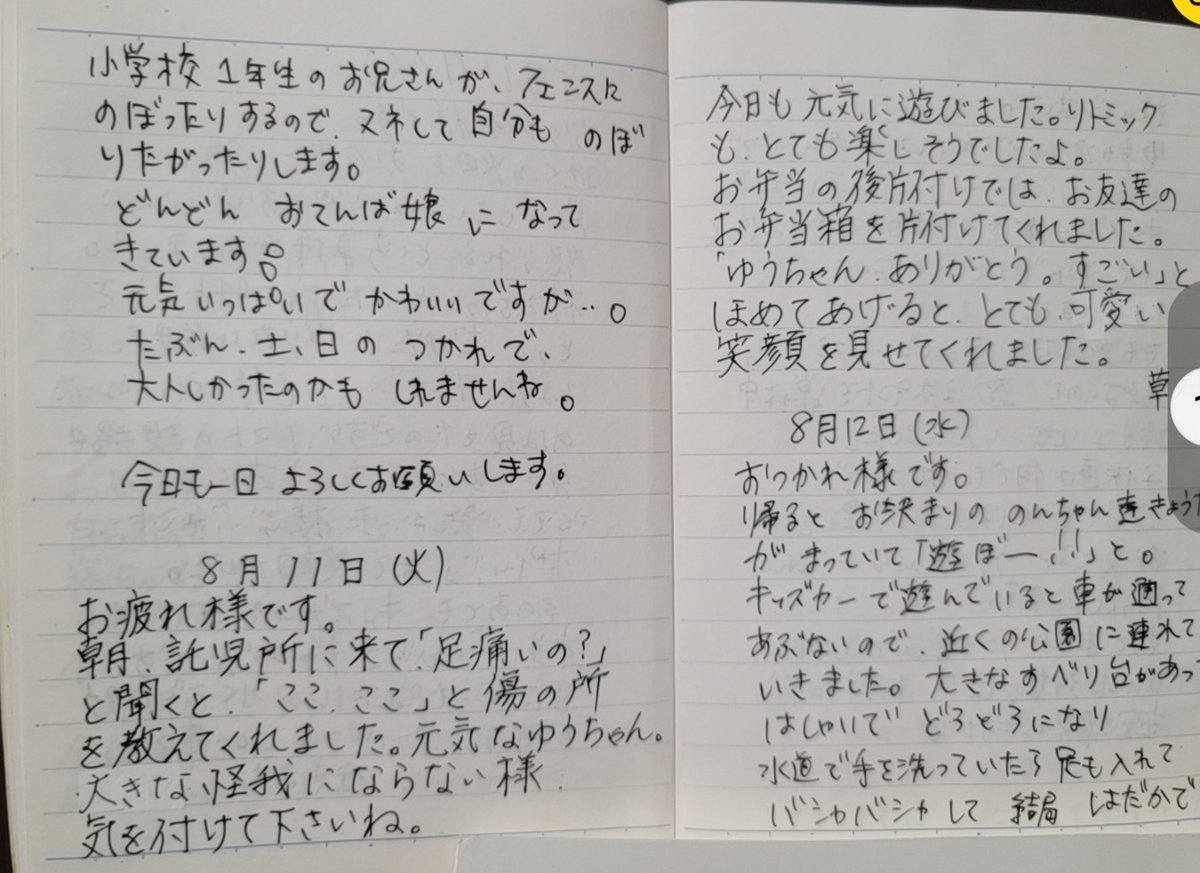 小学校1年生のお兄さんが、フェンスに
のぼったりするので、マネして自分ものぼ
りたがったりします。
どんどん おてんば娘に なって
きています。
元気いっぱいで かわいいですが…。
たぶん、土、日の つかれで、
大人しかったのかも しれませんね。
今日も一日 よろしくお願いします。
8月11日(火)
お疲れ様です。
朝、託児所に来て「足痛いの?」
と聞くと、「ここ、ここ」と傷の所
を教えてくれました。元気なゆうちゃん。
大きな怪我にならない様
気を付けて下さいね。
今日も元気に遊びました。リトミック
も、とても楽しそうでしたよ。
お弁当の後片付けでは、お友達の
お弁当箱を片付けてくれました。
「ゆうちゃん、ありがとう。すごい」と
ほめてあげると、とても可愛い
笑顔を見せてくれました。
草
8月12日(水)
おつかれ様です。
帰ると お決まりの のんちゃん達きょうだ
がまっていて「遊ぼー!!」と。
キッズカーで遊んでいると車が通って
あぶないので、近くの公園に連れて
いきました。大きなすべり台があっ
はしゃいで どろどろになり
水道で手を洗っていたら足も入れて
バシャバシャして 結局 はだかで